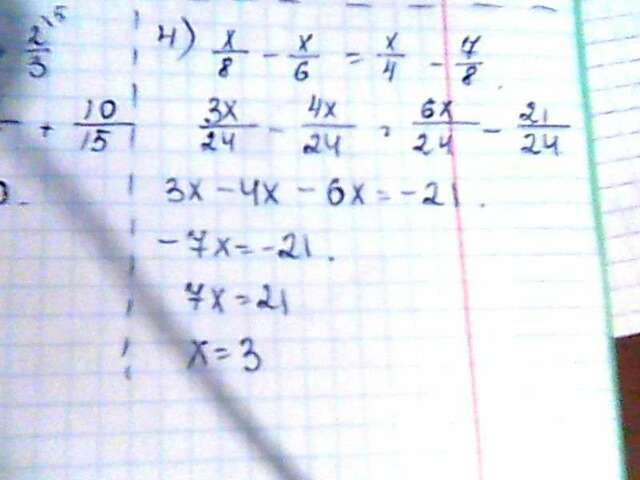 2/3 15
+ 10/15
4) x/8 - x/6 = x/4 - 7/8
3x/24 - 4x/24 = 6x/24 - 21/24
3x - 4x - 6x = -21.
-7x = -21.
7x = 21
x = 3